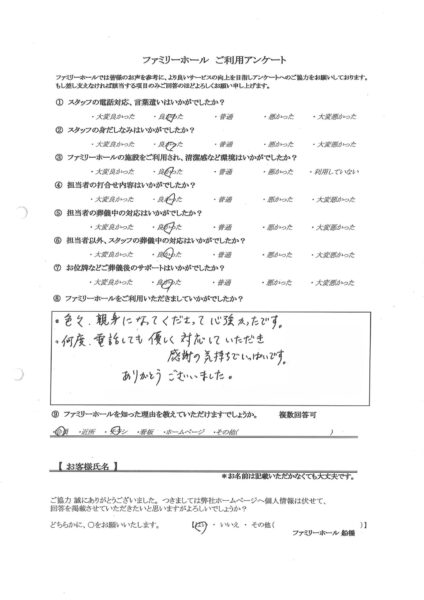 ファミリーホール　ご利用アンケート
ファミリーホールでは皆様のお声を参考に、より良いサービスの向上を目指しアンケートへのご協力をお願いしております。
もし差し支えなければ該当する項目のみご回答のほどよろしくお願い申し上げます。
① スタッフの電話対応、言葉遣いはいかがでしたか？
・大変良かった ・良かった ・普通 ・悪かった ・大変悪かった
② スタッフの身だしなみはいかがでしたか？
・大変良かった ・良かった ・普通 ・悪かった ・大変悪かった
③ ファミリーホールの施設をご利用され、清潔感など環境はいかがでしたか？
・大変良かった ・良かった ・普通 ・悪かった ・利用していない
④ 担当者の打合せ内容はいかがでしたか？
・大変良かった ・良かった ・普通 ・悪かった ・大変悪かった
⑤ 担当者の葬儀中の対応はいかがでしたか？
・大変良かった ・良かった ・普通 ・悪かった ・大変悪かった
⑥ 担当者以外、スタッフの葬儀中の対応はいかがでしたか？
・大変良かった ・良かった ・普通 ・悪かった ・大変悪かった
⑦ お位牌などご葬儀後のサポートはいかがでしたか？
・大変良かった ・良かった ・普通 ・悪かった ・大変悪かった
⑧ ファミリーホールをご利用いただきましていかがでしたか？
・色々、親身になってくださって心強かったです。
・何度、電話しても優しく対応していただき
感謝の気持ちでいっぱいです。
ありがとうございました。
⑨ ファミリーホールを知った理由を教えていただけますでしょうか。　複数回答可
・会員 ・近所 ・チラシ ・看板 ・ホームページ ・その他( )
【 お客様氏名 】
＊お名前は記載いただかなくても大丈夫です。
ご協力 誠にありがとうございました。つきましては弊社ホームページへ個人情報は伏せて、
回答を掲載させていただきたいと思いますがよろしいでしょうか？
どちらかに、○をお願いいたします。 【はい ・ いいえ ・ その他( )】
ファミリーホール 船橋